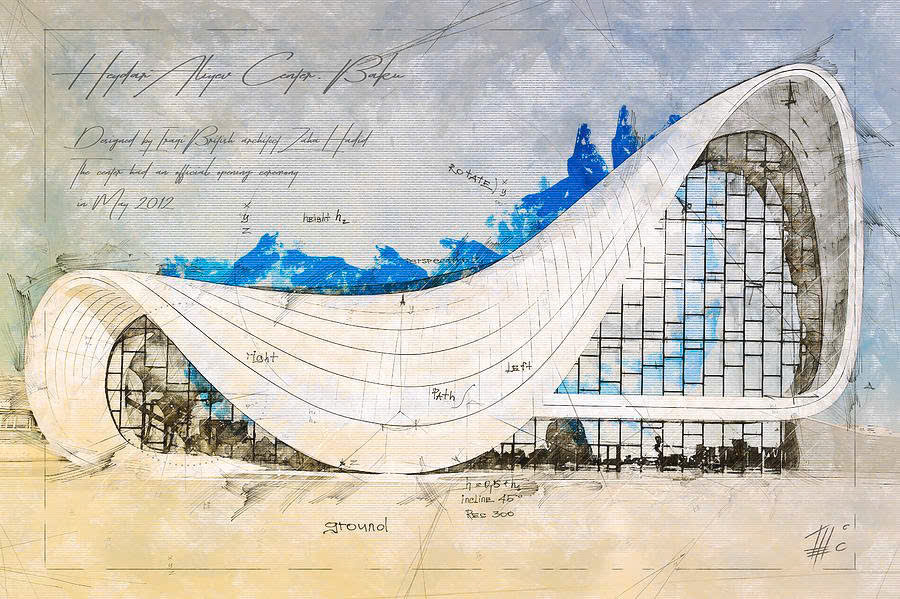 Heydar Aliyev Center. Baku
Designed by Iraqi British architect Zaha Hadid
The center had an official opening ceremony
in May 2012
ROTATE) x y
x
y
z
height h₂
perspective
Right
Left
PAth
h = 0,5 + h₁
incline 45°
RES 300
ground